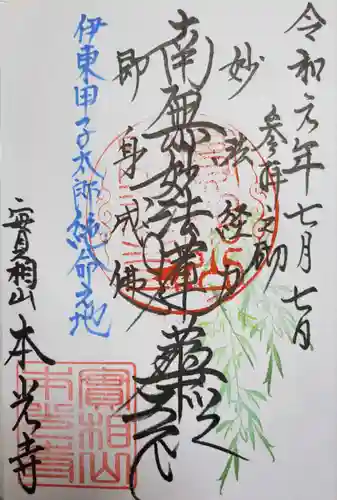 令和元年七月七日
参拝之砌
妙法経力
南無妙法蓮華経
即身成佛
伊東甲子太郎絶命之地
實相山
本光寺
實相山
本光寺